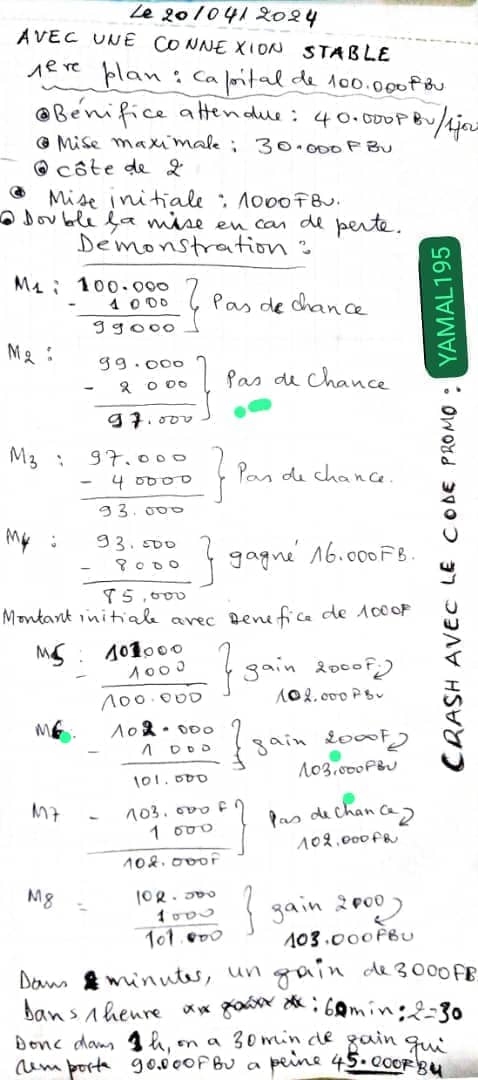 Le 20/04/2024
AVEC UNE CONNEXION STABLE
1ere plan : capital de 100.000FBU
Bénifice attendue : 40.000FBU/1jou
Mise maximale : 30.000FBU
côte de 2
Mise initiale : 1000FBU.
Double la mise en cas de perte.
Demonstration :
M1 : 100.000
- 1000
99000
Pas de chance
M2 :
99.000
- 2000
97.000
Pas de chance
M3 : 97.000
- 40000
93.000
Pas de chance.
M4 : 93.000
- 8000
85.000
gagné 16.000FB.
Montant initiale avec Benefice de 1000F
M5 : 101000
1000
100.000
gain 2000F
102.000FBU
M6 : 102.000
- 1000
101.000
gain 2000F
103.000FBU
M7 - 103.000F
1000
102.000F
Pas de chance
102.000FBU
M8 = 102.000
1000
101.000
gain 2000
103.000FBU
Dans 2 minutes, un gain de 3000FB
Dans 1 heure : 60min:2=30
Donc dans 1h, on a 30min de gain qui
remporte 90.000FBU a peine 45.000FBU
CRASH AVEC LE CODE PROMO : YAMAL195